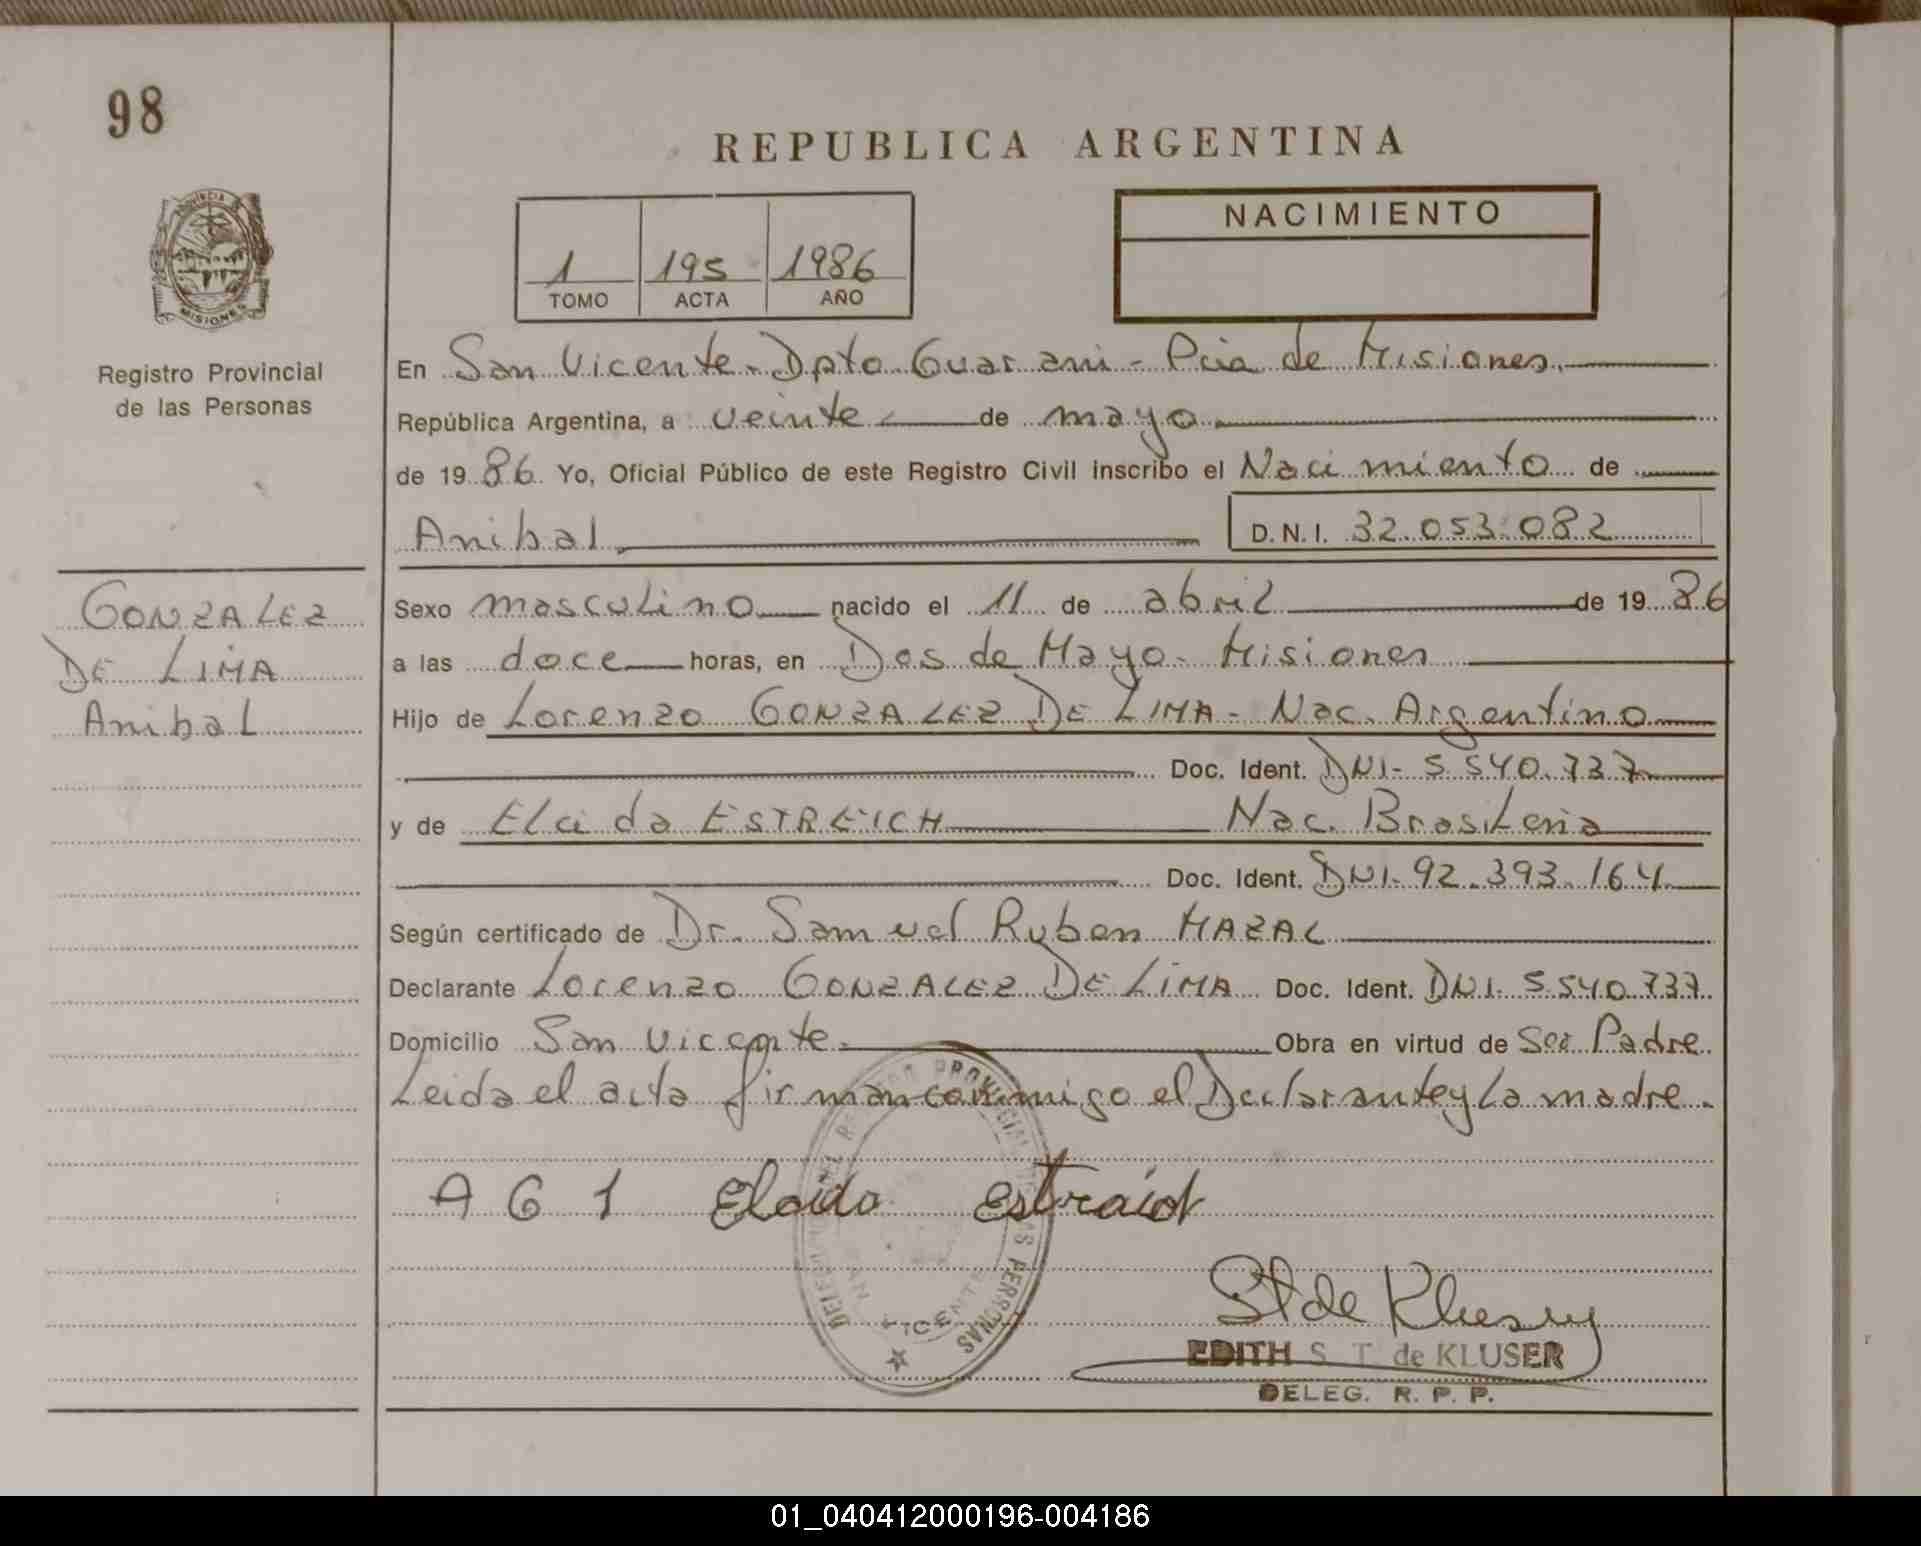 98
REPUBLICA ARGENTINA
NACIMIENTO
1 195 1986
TOMO ACTA AÑO
MISIONES
Registro Provincial
de las Personas
En San Vicente - Dpto Guarani - Pcia de Misiones
República Argentina, a veinte de mayo
de 1986 Yo, Oficial Público de este Registro Civil inscribo el Nacimiento de
Anibal D.N.I. 32.053.082
GONZALEZ
DE LIMA
Anibal
Sexo masculino nacido el 11 de abril de 1986
a las doce horas, en Dos de Mayo - Misiones
Hijo de Lorenzo GONZALEZ DE LIMA - Nac. Argentino
Doc. Ident. DNI- 5.540.737
y de Elcida ESTREICH Nac. Brasileña
Doc. Ident. DNI- 92.393.164
Según certificado de Dr. Samuel Ruben MAZAL
Declarante Lorenzo GONZALEZ DE LIMA Doc. Ident. DNI. 5.540.737
Domicilio San Vicente Obra en virtud de Ser Padre
Leida el acta firman conmigo el Declarante y la madre.
A G 1
EDITH S. T. de KLUSER
DELEG. R. P. P.
01_040412000196-004186